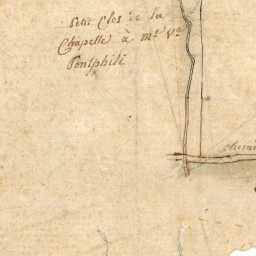 Petit Clos de la
Chapelle à Mr Ve
Pontphili
chemi